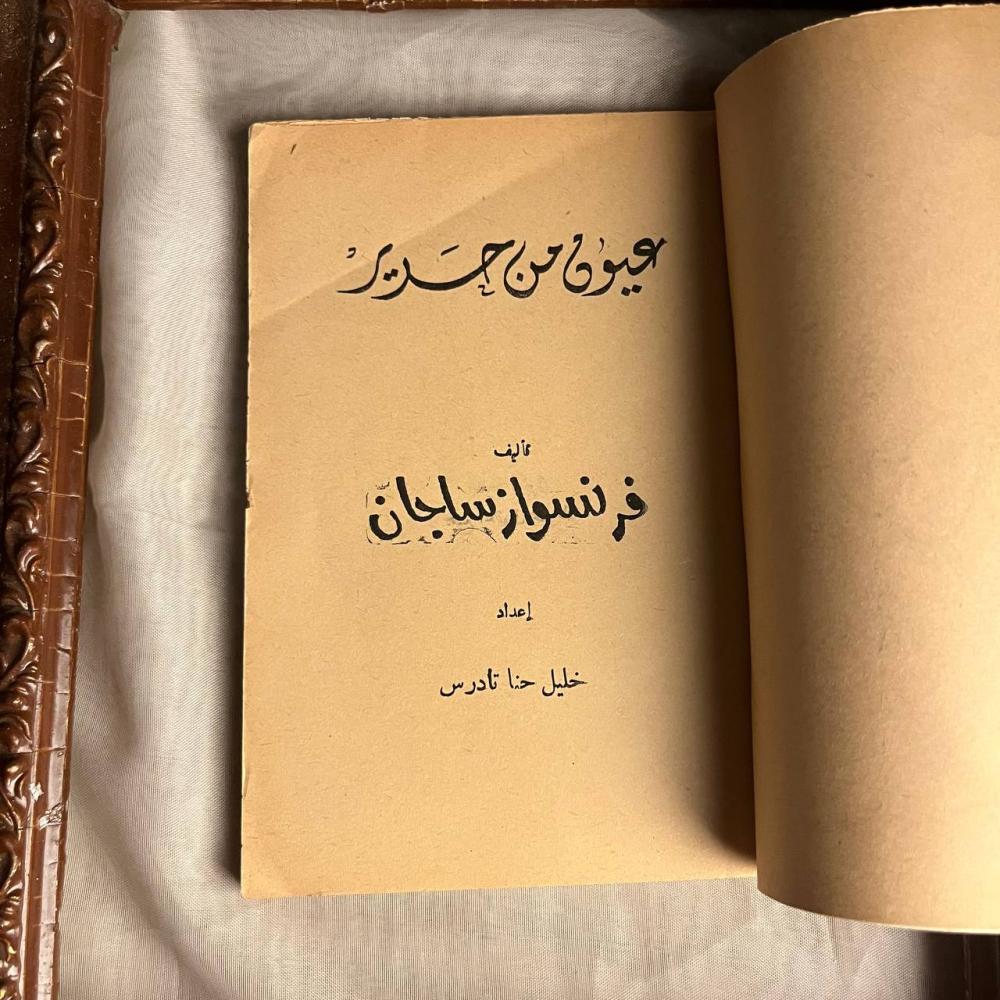 عيون من حرير
تأليف
فرنسواز ساجان
إعداد
خليل حنا تادرس